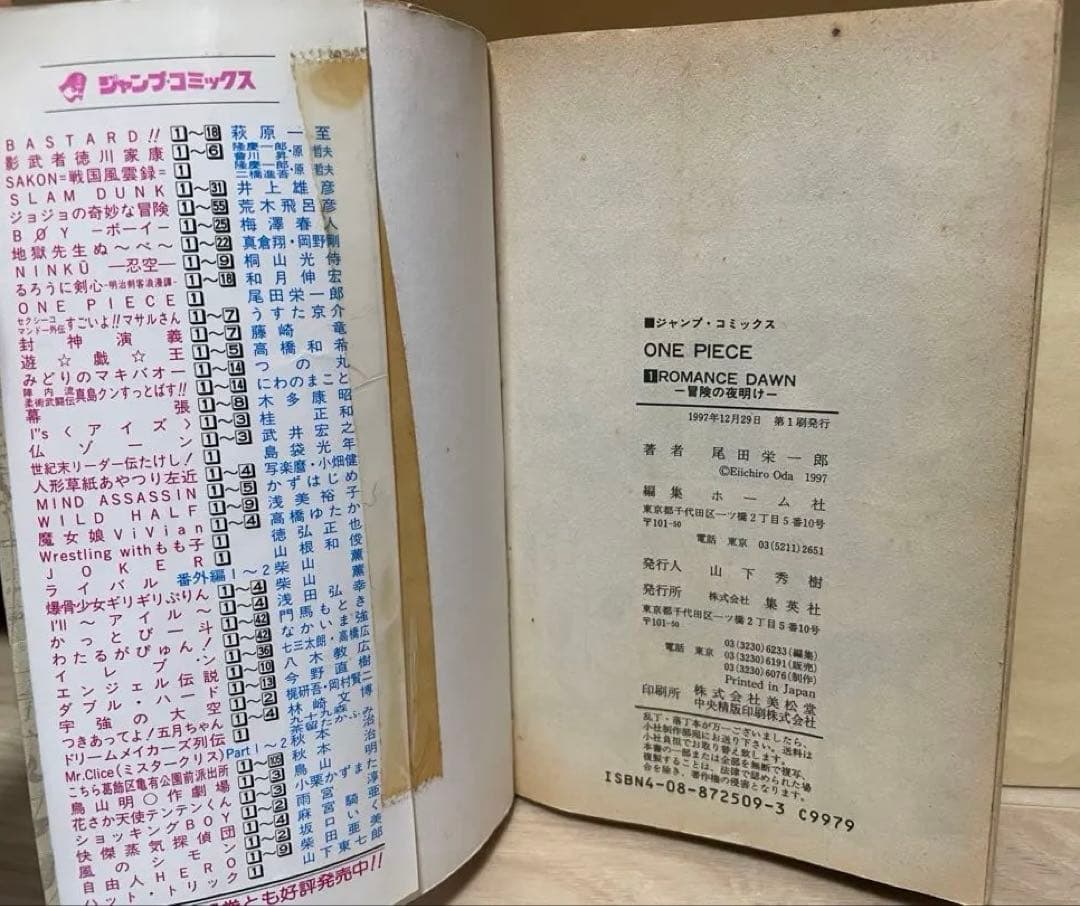 ジャンプ・コミックス
BASTARD!! 1〜18 萩原一至
影武者徳川家康 1〜6 隆慶一郎・曾川昇・原哲夫
SAKON=戦国風雲録= 1 隆慶一郎・二橋進吾・原哲夫
SLAM DUNK 1〜31 井上雄彦
ジョジョの奇妙な冒険 1〜55 荒木飛呂彦
BØY −ボーイ− 1〜25 梅澤春人
地獄先生ぬ〜べ〜 1〜22 真倉翔・岡野剛
NINKŪ ―忍空― 1〜9 桐山光侍
るろうに剣心−明治剣客浪漫譚− 1〜18 和月伸宏
ONE PIECE 1 尾田栄一郎
セクシーコマンドー外伝 すごいよ!!マサルさん 1〜7 うすた京介
封神演義 1〜7 藤崎竜
遊☆戯☆王 1〜5 高橋和希
みどりのマキバオー 1〜14 つの丸
陣内流柔術武闘伝 真島クンすっとばす!! 1〜14 にわのまこと
幕張 1〜8 木多康昭
I"s〈アイズ〉 1〜3 桂正和
仏ゾーン 1〜3 武井宏之
世紀末リーダー伝たけし! 1 島袋光年
人形草紙あやつり左近 1〜4 写楽麿・小畑健
MIND ASSASSIN 1〜5 かずはじめ
WILD HALF 1〜9 浅美裕子
魔女娘ViVian 1〜4 高橋ゆたか
Wrestling withもも子 1 徳弘正也
JOKER 1 山根和俊
ライバル 番外編1〜2 柴山薫
爆骨少女ギリギリぷりん 1〜4 柴山薫
I'll 〜アイル〜 1〜4 浅田弘幸
かっとび一斗 1〜42 門馬もとき
わたるがぴゅん! 1〜42 なかいま強
イレブン 1〜36 七三太朗・高橋広
エンジェル伝説 1〜10 八木教広
ダブル・ハード 1〜13 今野直樹
宇強の大空 1〜2 梶研吾・岡村賢二
つきあってよ!五月ちゃん 1〜4 林崎文博
ドリームメイカーズ列伝 1
Mr.Clice(ミスタークリス) Part1〜2 秋本治
こちら葛飾区亀有公園前派出所 1〜103 秋本治
鳥山明○作劇場 1〜3 鳥山明
花さか天使テンテンくん 1〜2 小栗かずまた
ショッキングBOY 1〜4 雨宮淳
快傑蒸気探偵団 1〜4 麻宮騎亜
風のシモン 1〜2 坂口いく
自由人HERO 1〜9 柴田亜美
ハット・トリック 1 山下東七郎
とも好評発売中!!
■ジャンプ・コミックス
ONE PIECE
1ROMANCE DAWN
−冒険の夜明け−
1997年12月29日 第1刷発行
著者 尾田栄一郎
©Eiichiro Oda 1997
編集 ホーム社
東京都千代田区一ツ橋2丁目5番10号
〒101-50
電話 東京 03(5211)2651
発行人 山下秀樹
発行所 株式会社 集英社
東京都千代田区一ツ橋2丁目5番10号
〒101-50
03(3230)6233(編集)
電話 東京 03(3230)6191(販売)
03(3230)6076(制作)
Printed in Japan
印刷所 株式会社美松堂
中央精版印刷株式会社
乱丁・落丁本が万一ございましたら、
小社制作部宛にお送り下さい。送料は
小社負担でお取り替え致します。
本書の一部または全部を無断で複写、
複製することは、法律で認められた場
合を除き、著作権の侵害となります。
ISBN4-08-872509-3 C9979